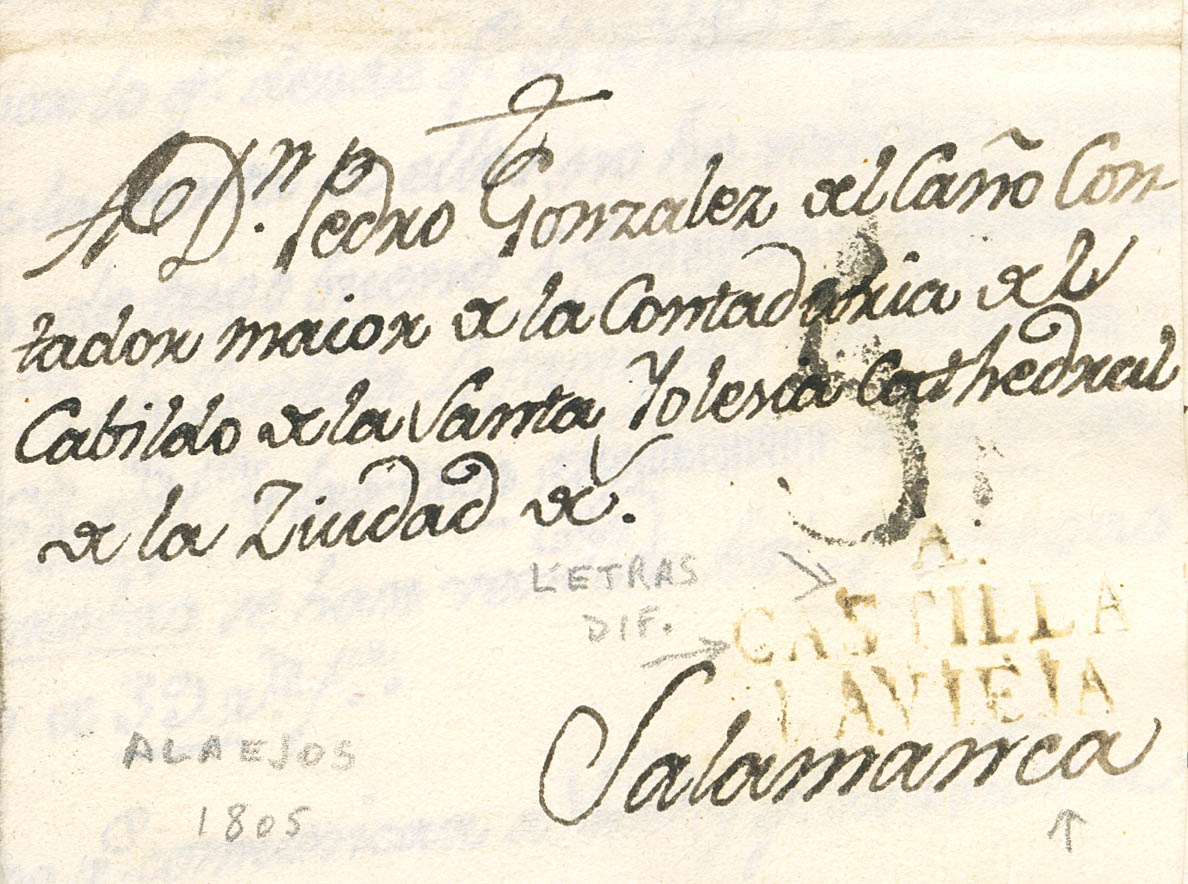 A Dⁿ. Pedro Gonzalez del Caño Con-
tador maior de la Contaduria del
Cabildo de la Santa Yglesia Cathedral
de la Ziudad de.
Salamanca
5.
A.
CASTILLA
LA VIEJA
LETRAS
DIF.
ALAEJOS
1805